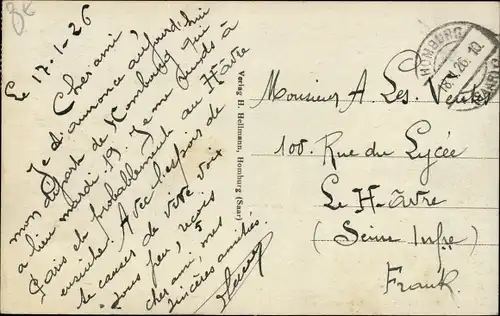 Le 17-1-26
Cher ami
Je t'annonce aujourd'hui
mon départ de Hombourg qui
a lieu mardi 19. Je me rends à
Paris et probablement au Hâvre
ensuite. Avec l'espoir de
te causer de vive voix
sous peu, reçois
cher ami, mes
sincères amitiés.
Verlag H. Hellmann, Homburg (Saar)
HOMBURG
18.1.26.10
Monsieur A Les
105 Rue du Lycée
Le Hâvre
(Seine Infre)
Frank.